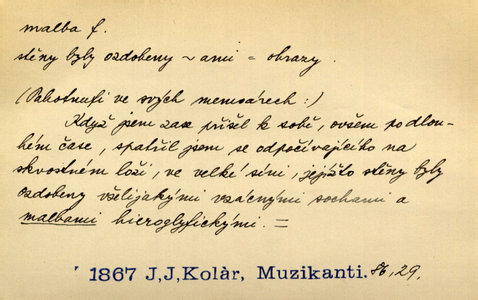 malba f.
stěny byly ozdobeny ~ ami = obrazy.
(Pahotnufi ve svých memoárech:)
Když jsem zase přišel k sobě, ovšem po dlou-
hém čase, spatřil jsem se odpočívajícího na
skvostném loži, ve velké síni, jejížto stěny byly
ozdobeny všelijakými vzácnými sochami a
malbami hieroglyfickými. =
1867 J,J,Kolàr, Muzikanti. 86, 29.